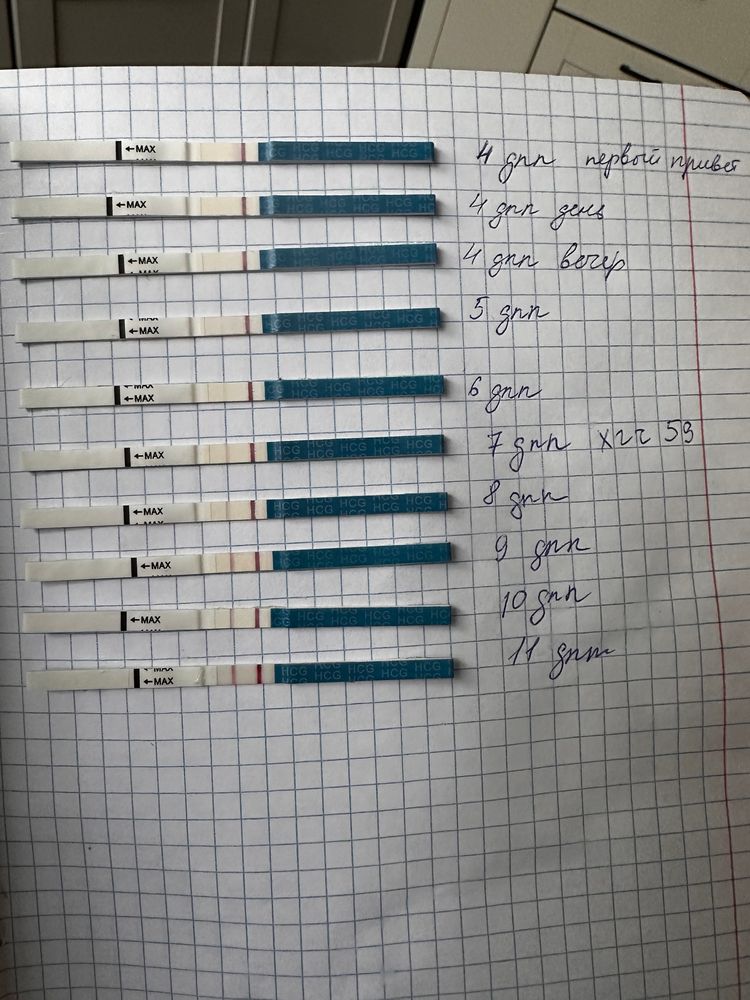 ←MAX HCG HCG HCG 4 дпп первый привет
←MAX HCG HCG HCG 4 дпп день
←MAX HCG HCG HCG 4 дпп вечер
←MAX HCG HCG HCG 5 дпп
←MAX HCG HCG HCG 6 дпп
←MAX HCG HCG HCG HCG 7 дпп хгч 59
←MAX HCG HCG HCG 8 дпп
←MAX HCG HCG HCG 9 дпп
←MAX HCG HCG HCG HCG 10 дпп
←MAX HCG HCG HCG HCG 11 дпп